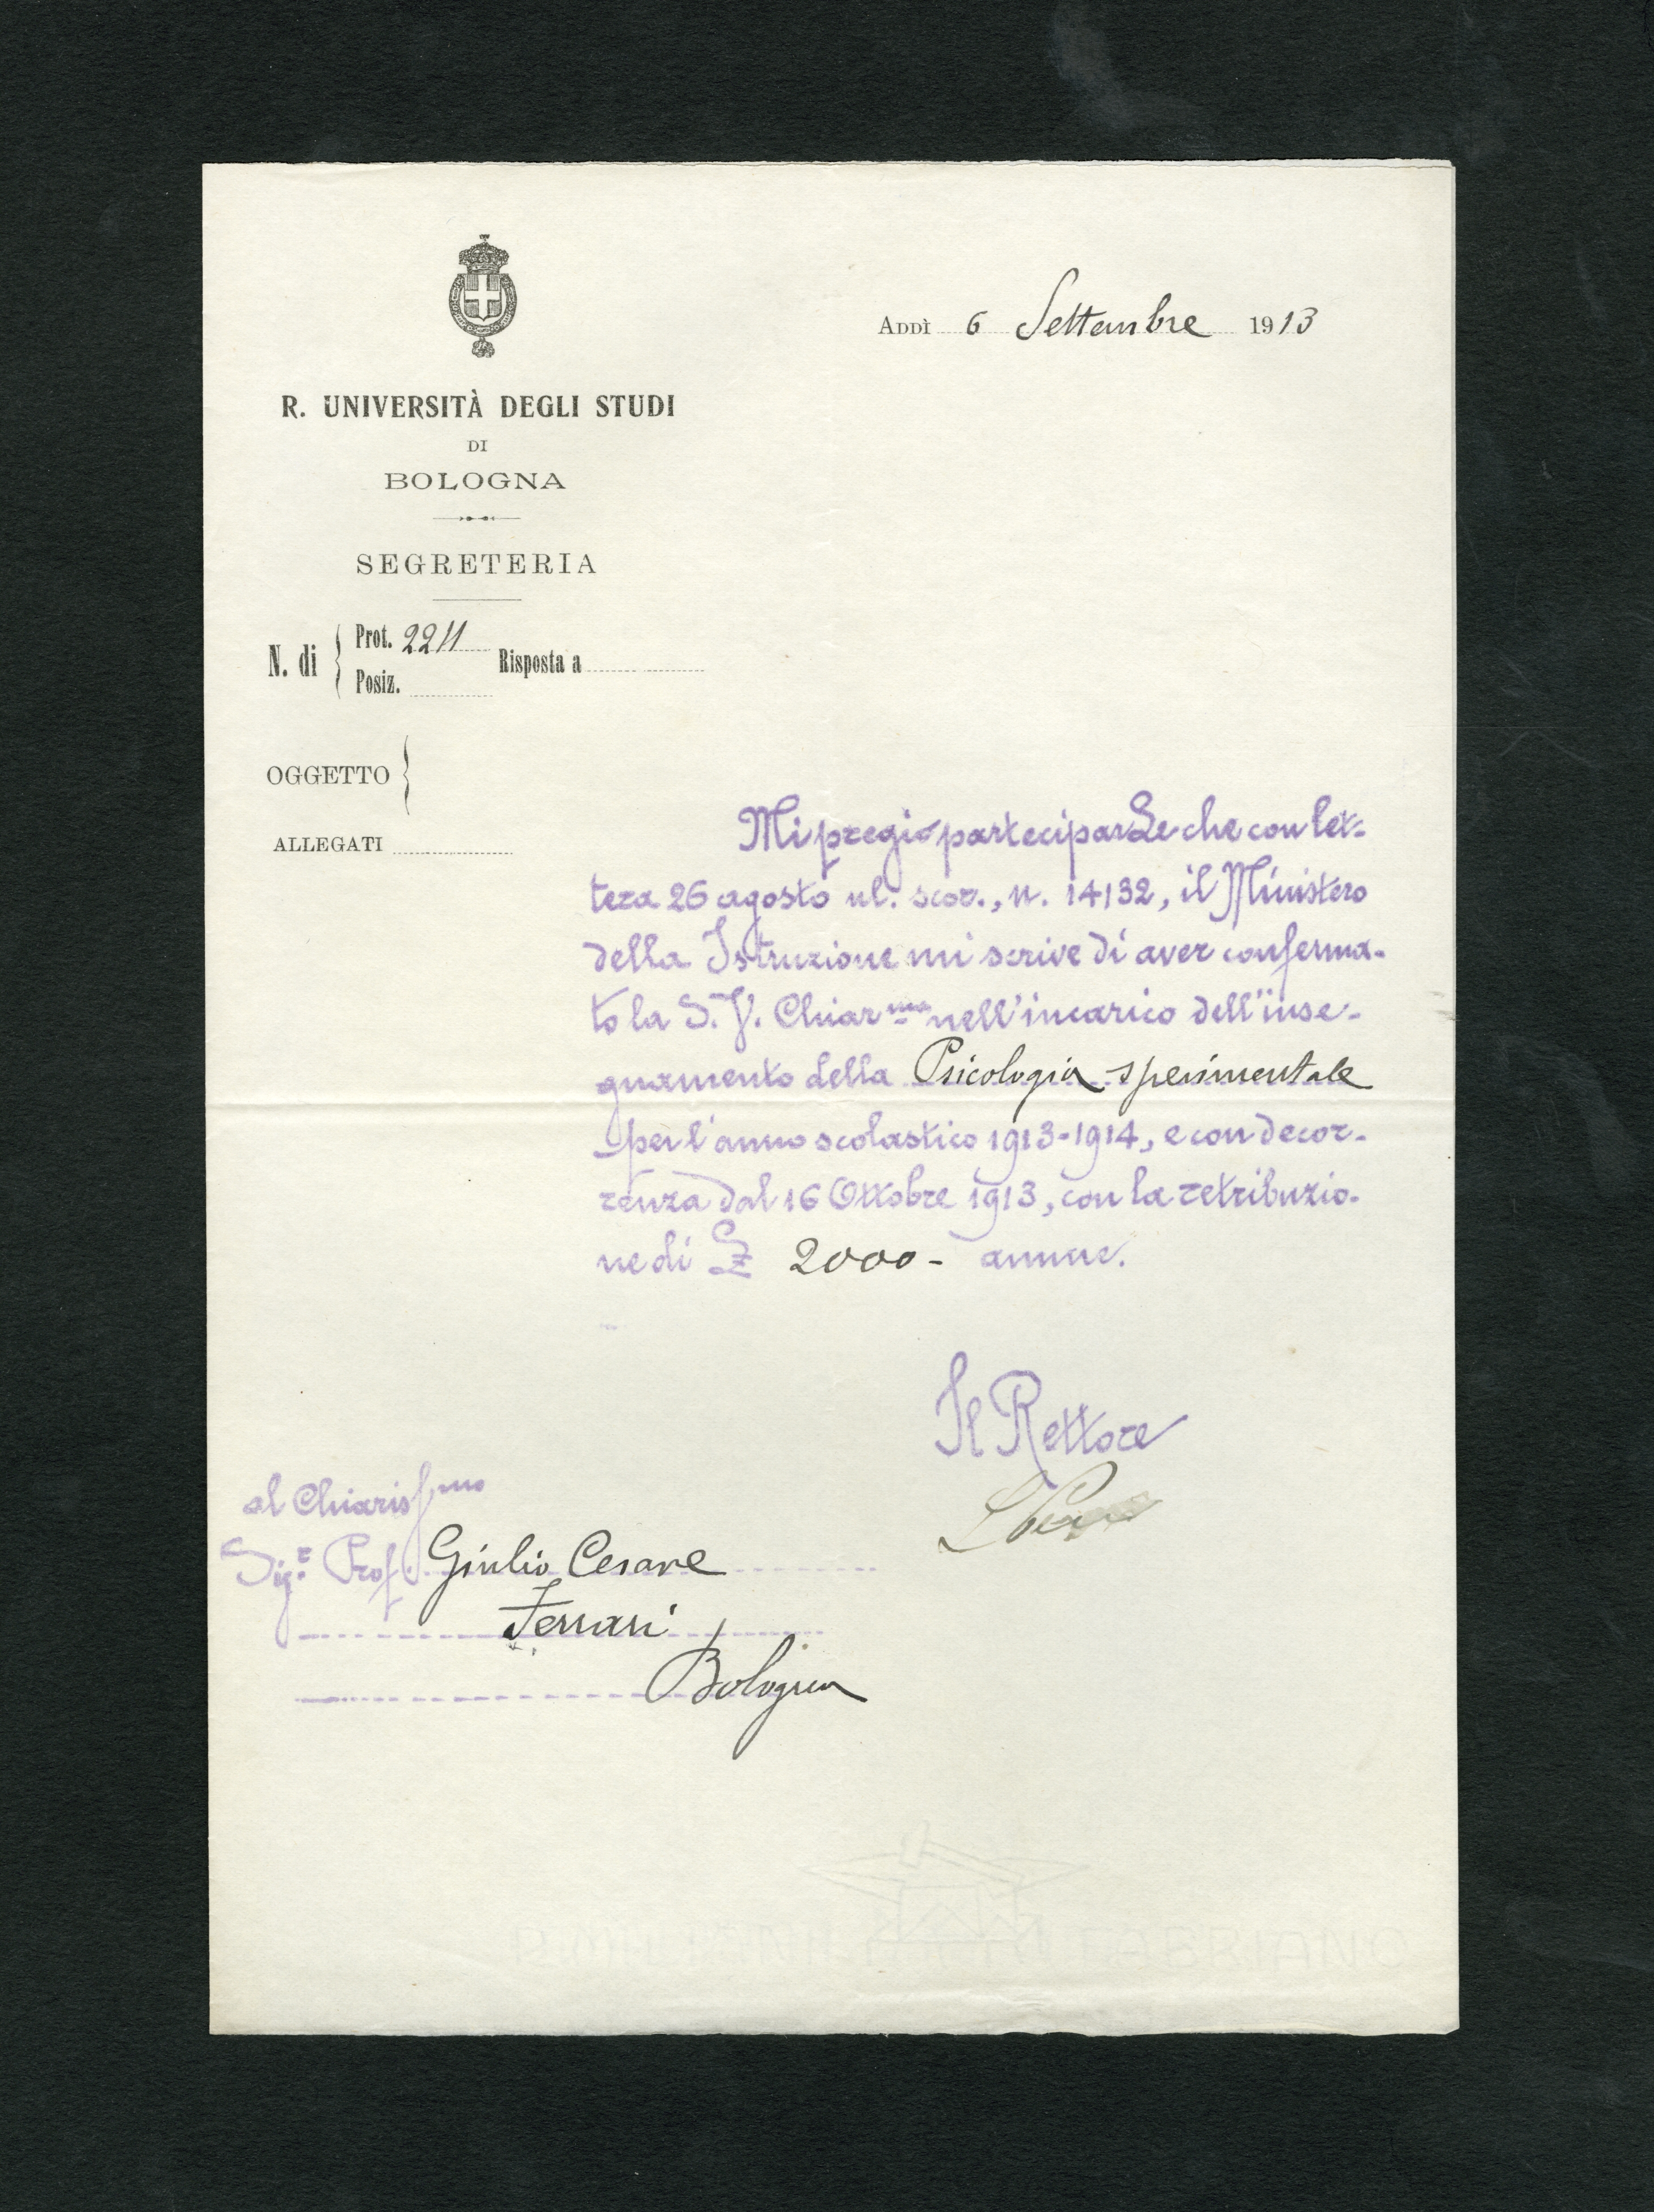 Addì 6 Settembre 1913
R. UNIVERSITÀ DEGLI STUDI
DI
BOLOGNA
SEGRETERIA
N. di { Prot. 2211
Posiz.
Risposta a
OGGETTO {
ALLEGATI
Mi pregio parteciparLe che con let-
tera 26 agosto ul. scor., n. 14132, il Ministero
della Istruzione mi scrive di aver conferma-
to la S. V. Chiar.ma nell'incarico dell'inse-
gnamento della Psicologia sperimentale
per l'anno scolastico 1913-1914, e con decor-
renza dal 16 Ottobre 1913, con la retribuzio-
ne di £ 2000 - annue.
Il Rettore
al Chiarissmo
Sig.r Prof. Giulio Cesare
Ferrari
Bologna
FABRIANO